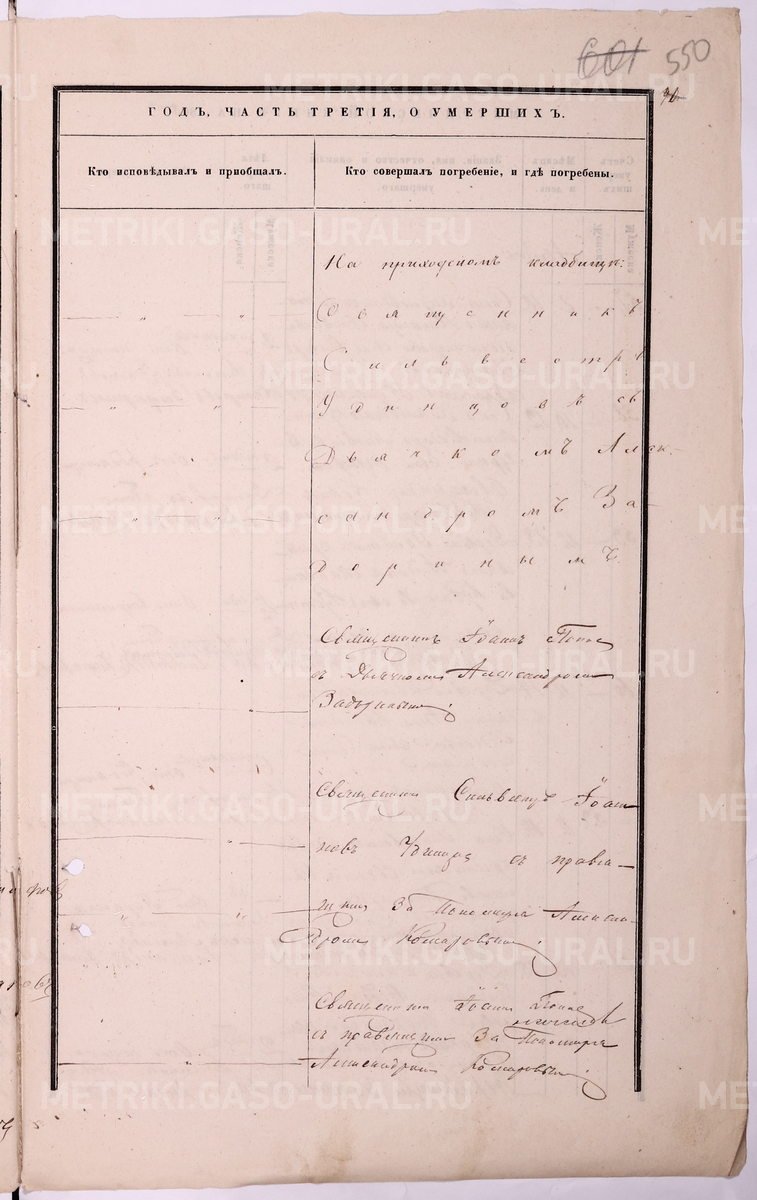 601 550
ГОДЪ, ЧАСТЬ ТРЕТІЯ, О УМЕРШИХЪ.
Кто исповѣдывалъ и приобщалъ.
Кто совершалъ погребеніе, и гдѣ погребены.
На приходскомъ кладбищѣ:
Священникъ
Сильвестръ
Удинцовъ съ
Дьячкомъ Алек-
сандромъ За-
доринымъ.
Священникъ Іоаннъ Попов
съ Дьячкомъ Александромъ
Задоринымъ.
Священникъ Сильвестръ Іоан
новъ съ правя-
щимъ За Пономаря Алексан-
дромъ Комаровымъ.
Священникъ Іоаннъ Попов
съ правящимъ За Пономаря
Александромъ Комаровымъ.
METRIKI.GASO-URAL.RU